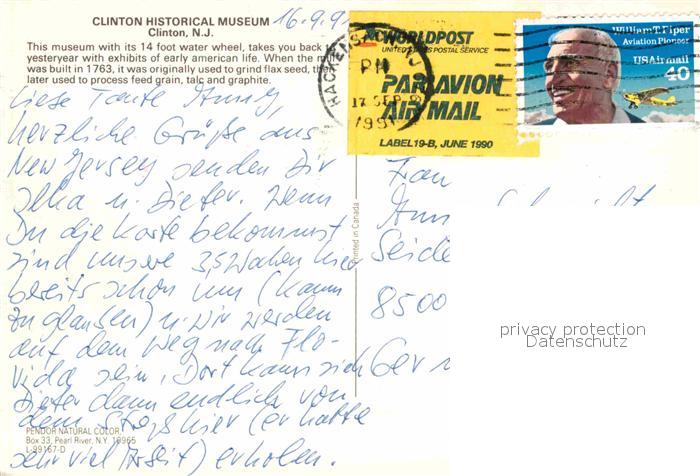 CLINTON HISTORICAL MUSEUM
Clinton, N.J.
This museum with its 14 foot water wheel, takes you back to
yesteryear with exhibits of early american life. When the mill
was built in 1763, it was originally used to grind flax seed, then
later used to process feed grain, talc and graphite.
16.9.91
Liebe Tante Anny,
herzliche Grüße aus
New Jersey senden Dir
Ilka u. Dieter. Wenn
Du die Karte bekommst
sind unsere 3,5 Wochen hier
bereits schon um (kaum
zu glauben) u. wir werden
auf dem Weg nach Flo-
rida sein. Dort kann sich
Dieter dann endlich von
dem Streß hier (er hatte
sehr viel Arbeit) erholen.
PENDOR NATURAL COLOR
Box 33, Pearl River, N.Y. 10965
L-99167-D
Printed in Canada
HACKENSACK
N J
PM
17 SEP
1991
WORLDPOST
UNITED STATES POSTAL SERVICE
PAR AVION
AIR MAIL
LABEL 19-B, JUNE 1990
William T. Piper
Aviation Pioneer
USAirmail
40
Frau
Ann
Seide
8500
Ger
privacy protection
Datenschutz